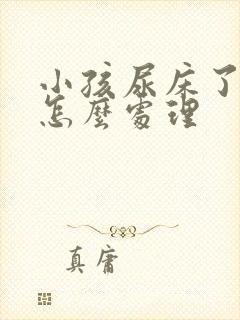 小孩尿床了
怎麼處理
真庸